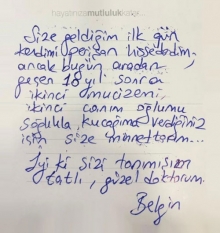 hayatınızamutluluk
Size geldiğim ilk gün
kendimi perişan hissederdim
ancak bugün aradan
geçen 18 yıl sonra
ikinci mucizemi
ikinci canım oğlumu
sağlıkla kucağıma verdiğiniz
için size minnettarım...
İyi ki sizi tanımışım
tatlı, güzel doktorum
Belgin